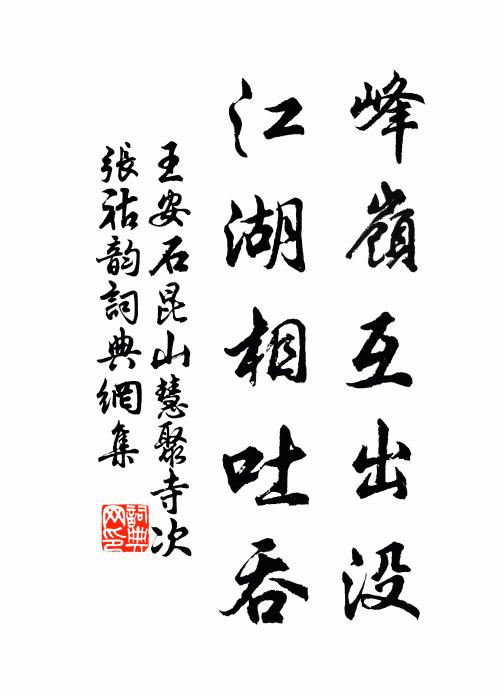 峰嶺互出没
江湖相吐吞
王安石昆山慧聚寺次
張祜韵詞典網集
詞典网印